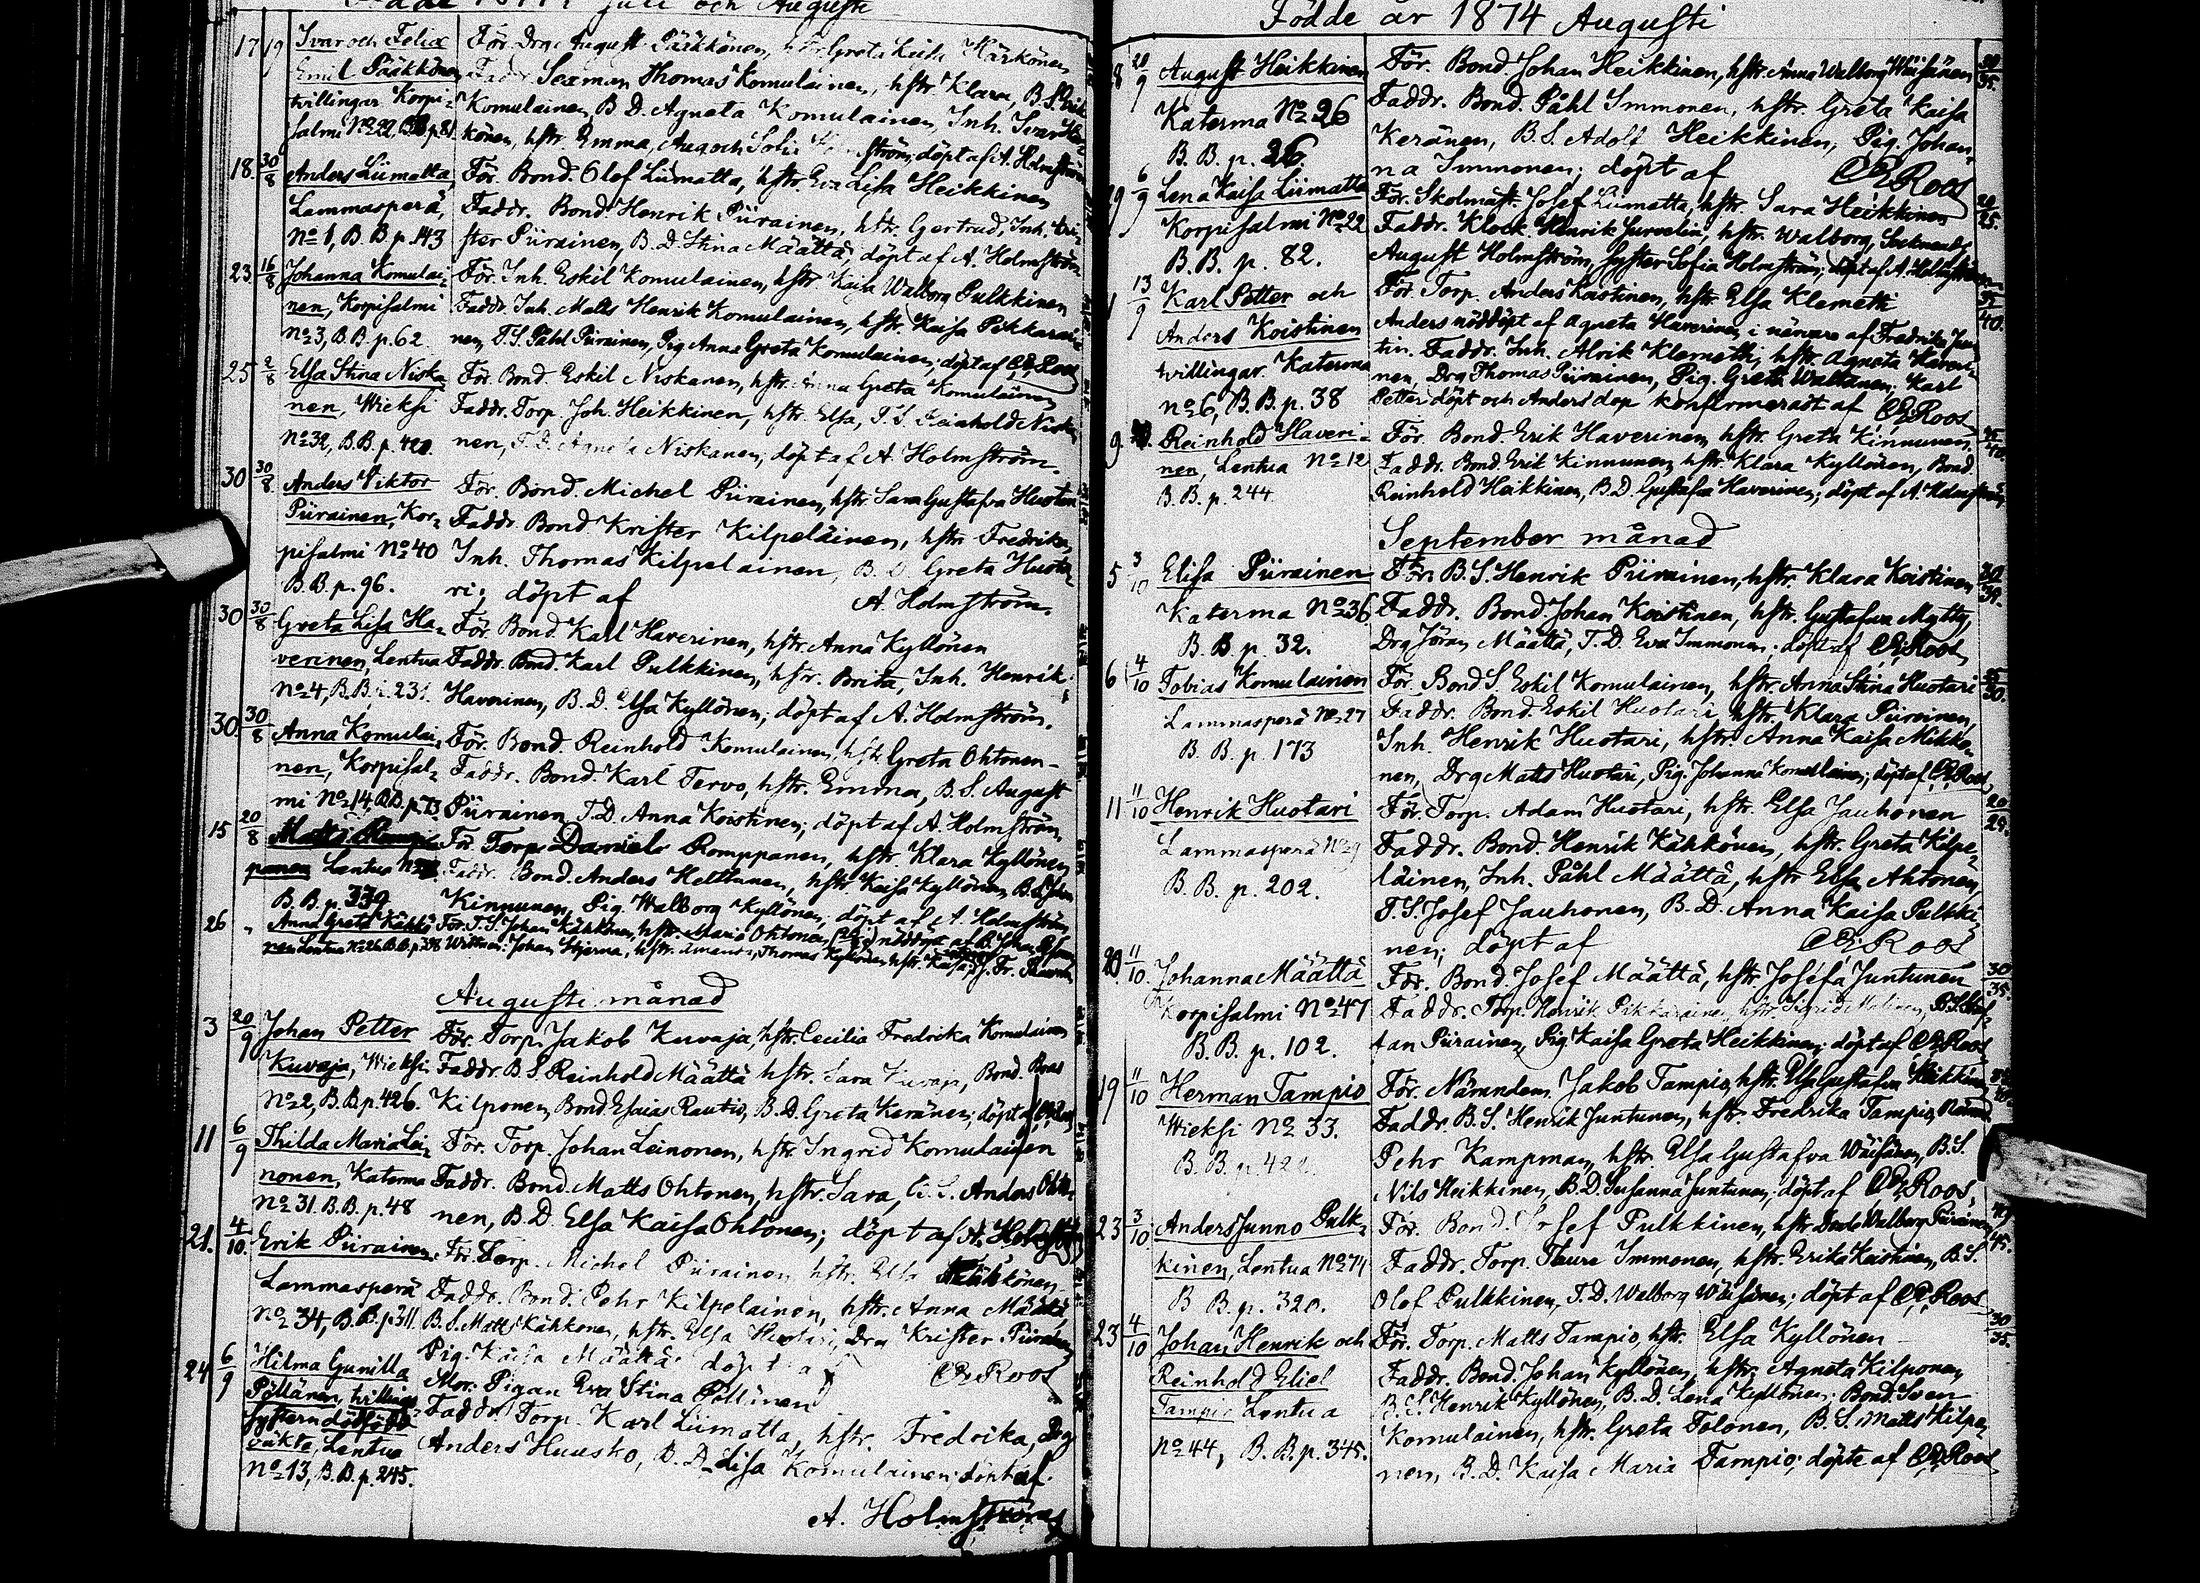 Födde 1874 Juli och Augusti
17 19 Ivar och Felix För. Drg. August Pääkkönen, hstr Greta Lisa Härkönen
Emil Pääkkönen Faddr. Sexman Thomas Komulainen, hstr Klara, B.S. Erik
tvillingar Korpi- Komulainen, B.D. Agneta Komulainen, Inh. Ivar
salmi No 22 BB p. 81. könen, hstr. Emma, Aug. och Sofia döpt af A. Holmström
18 30/8 Anders Liimatta, För. Bond. Olof Liimatta, hstr. Eva Lisa Heikkinen
Lammasperä, Faddr. Bond. Henrik Piirainen, hstr. Gertrud, Inh. Kri-
No 1, B.B. p. 143 ster Piirainen, B.D. Stina Määttä; döpt af A. Holmström
23 16/8 Johanna Komulai- För. Inh. Eskil Komulainen, hstr Kaisa Walborg Pulkkinen
nen, Korpisalmi Faddr. Inh. Matts Henrik Komulainen, hstr. Kaisa Pikkarai-
No 3, B.B. p. 62. nen, T.S. Påhl Piirainen, Pig. Anna Greta Komulainen; döpt af CERoos
25 2/8 Elsa Stina Niska- För. Bond. Eskil Niskanen, hstr. Anna Greta Komulainen
nen, Wieksi Faddr. Torp. Joh. Heikkinen, hstr. Elsa, T.S. Reinhold Niska-
No 32, B.B. p. 420. nen, T.D. Agneta Niskanen; döpt af A. Holmström.
30 30/8. Anders Viktor För. Bond. Michel Piirainen, hstr. Sara Gustafva Huotari
Piirainen, Kor- Faddr. Bond Krister Kilpeläinen, hstr Fredrika,
pisalmi No 40 Inh. Thomas Kilpelainen, B.D. Greta Huota-
B.B. p. 96. ri; döpt af A. Holmström.
30 30/8 Greta Lisa Ha- För. Bond. Karl Haverinen, hstr. Anna Kyllönen
verinen, Lentua Faddr. Bond. Karl Pulkkinen, hstr. Brita, Inh. Henrik
No 4, B.B. p. 231. Haverinen, B.D. Elsa Kyllönen; döpt af A. Holmström.
30. 30/8 Anna Komulai- För. Bond. Reinhold Komulainen, hstr Greta Ohtonen-
nen, Korpisal- Faddr. Bond. Karl Tervo, hstr. Emma, B.S. August
mi No 14 B.B. p. 73 Piirainen, T.D. Anna Koistinen; döpt af A. Holmström
15 20/8 Matts Romp- För. Torp. Daniel Romppanen, hstr. Klara Kyllönen
panen Lentua Faddr. Bond. Anders Helttunen, hstr Kaisa Kyllönen, B.S. Johan
B.B. p. 339 Kinnunen, Pig. Walborg Kyllönen; döpt af A. Holmström
26 " Anna Greta Kähkö- För. T.S. Johan Kähkönen, hstr. Maria Ohtonen, nöddöpt af B. Johan
nen Lentua No 26 B.B. p. 398 Wittnen: Johan Stjerna, hstr. Thomas Kyllönen hstr. Kaisa
Augusti månad
3 20/9 Johan Petter För. Torp. Jakob Kuvaja, hstr. Cecilia Fredrika Komulainen
Kuvaja, Wieksi Faddr. B.S. Reinhold Määttä hstr. Sara Kuvaja, Bond.
No 2, B.B. p. 426. Kilponen, Bond Esaias Rautio, B.D. Greta Keränen; döpt af CERoos
11 6/9 Thilda Maria Lei- För. Torp. Johan Leinonen, hstr Ingrid Komulainen
nonen, Katerma Faddr. Bond. Matts Ohtonen, hstr. Sara, B.S. Anders Ohto-
No 31. B.B. p. 48 nen, B.D. Elsa Kaisa Ohtonen; döpt af A. Holmström
21. 4/10. Erik Piirainen För. Torp. Michel Piirainen, hstr. Elsa Kähkönen
Lammasperä Faddr. Bond. Pehr Kilpelainen, hstr. Anna Määttä,
No 34, B.B. p. 311. B.S. Matts Kähkönen, hstr. Elsa Huotari, Drg Krister Piirainen,
Pig. Kaisa Määttä döpt af CERoos
24 6/9 Hilma Gunilla Mor. Pigan Eva Stina Pöllänen
Pöllänen, tvilling- Faddr. Torp. Karl Liimatta, hstr. Fredrika, Drg
systern dödfödd Anders Huusko, B.D. Lisa Komulainen; döpt af
oäkta, Lentua
No 13, B.B. p. 245. A. Holmström
Födde år 1874 Augusti
8 20/9 August Heikkinen För. Bond. Johan Heikkinen, hstr. Anna Walborg Wäisänen 30/35.
Katerma No 26 Faddr. Bond. Påhl Immonen, hstr. Greta Kaisa
B.B. p. 26. Keränen, B.S. Adolf Heikkinen, Pig. Johan-
na Immonen; döpt af CERoos
19 6/9 Lena Kaisa Liimatta För. Skolmäst. Josef Liimatta, hstr. Sara Heikkinen 20/25.
Korpisalmi No 22 Faddr. Klock. Henrik Hurvelin, hstr. Walborg,
B.B. p. 82. August Holmström, syster Sofia Holmström; döpt af A. Holmström
1 13/9 Karl Petter och För. Torp. Anders Koistinen, hstr. Elsa Klemetti 35/40.
Anders Koistinen Anders nöddöpt af Agneta Haverinen i närvaro af Fredrika Juu-
tvillingar. Katerma tin. Faddr. Inh. Alrik Klemetti, hstr. Agneta Haveri-
No 6, B.B. p. 38 nen, Drg Thomas Piirainen, Pig. Greta Waltanen; Karl
Petter döpt och Anders dop konfirmeradt af CERoos
9 Reinhold Haveri- För. Bond. Erik Haverinen, hstr. Greta Kinnunen.
nen, Lentua No 12 Faddr. Bond. Erik Kinnunen, hstr. Klara Kyllönen, Bond.
B.B. p. 244. Reinhold Heikkinen, B.D. Gustafva Haverinen; döpt af A. Holmström
September månad
5 3/10 Elisa Piirainen För. B.S. Henrik Piirainen, hstr. Klara Koistinen
Katerma No 36. Faddr. Bond Johan Koistinen, hstr. Gustafva Mytty,
B.B. p. 32. Drg Jöran Määttä, T.D. Eva Immonen; döpt af CERoos
6 4/10 Tobias Komulainen För. Bond S. Eskil Komulainen, hstr. Anna Stina Huotari
Lammasperä No 27 Faddr. Bond. Eskil Huotari, hstr. Klara Piirainen,
B.B. p. 173 Inh. Henrik Huotari, hstr. Anna Kaisa Mikko-
nen, Drg Matts Huotari, Pig. Johanna Komulainen; döpt af CERoos
11 11/10 Henrik Huotari För. Torp. Adam Huotari, hstr. Elsa Jauhonen 20/25.
Lammasperä No 9 Faddr. Bond. Henrik Kähkönen, hstr. Greta Kilpe-
B.B. p. 202. läinen, Inh. Påhl Määttä, hstr Elsa Ahtonen,
T.S. Josef Jauhonen, B.D. Anna Kaisa Pulkki-
nen; döpt af CERoos
20. 11/10. Johanna Määttä För. Bond. Josef Määttä, hstr. Josefa Juntunen 30/35.
Korpisalmi No 47 Faddr. Torp. Henrik Pikkarainen, hstr. Sigrid B.S. Stef-
B.B. p. 102. fan Piirainen, Pig Kaisa Greta Heikkinen; döpt af CERoos
19 11/10 Herman Tampio För. Nämndem. Jakob Tampio, hstr. Elsa Gustafva Heikkinen
Wieksi No 33. Faddr. B.S. Henrik Juntunen, hstr. Fredrika Tampio, Nämnd.
B.B. p. 422. Pehr Kampman, hstr. Elsa Gustafva Wäisänen, B.S.
Nils Heikkinen, B.D. Susanna Juntunen; döpt af CERoos.
23 3/10. Anders Junno Pulk- För. Bond. Josef Pulkkinen, hstr. Walborg Piirainen 40/45.
kinen, Lentua No 74 Faddr. Torp. Thure Immonen, hstr. Erika Koistinen, B.S.
B B. p. 320. Olof Pulkkinen, T.D. Walborg Wäisänen; döpt af CERoos
23 4/10 Johan Henrik och För. Torp. Matts Tampio, hstr. Elsa Kyllönen 30/35.
Reinhold Eliel Faddr. Bond. Johan Kyllönen, hstr. Agneta Kilponen
Tampio Lentua B.S. Henrik Kyllönen, B.D. Lena Kyllönen; Bond. Sven
No 44, B.B. p. 345. Komulainen, hstr. Greta Tolonen, B.S. Matts Kilpo-
nen, B.D. Kaisa Maria Tampio; döpte af CERoos